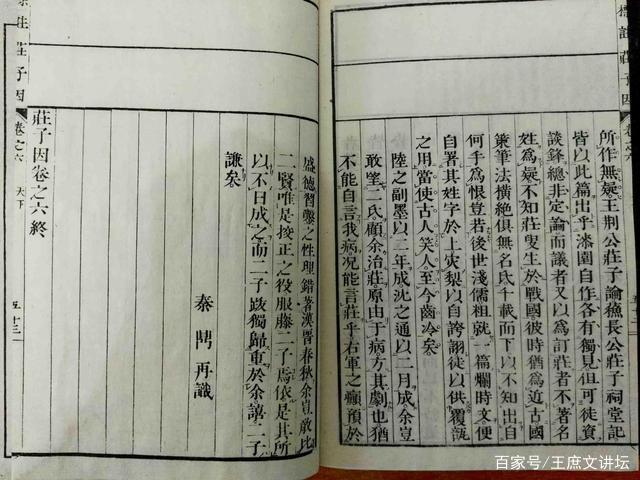 標註莊子因 卷之六
所作無疑王荆公莊子論蘓長公莊子祠堂記
皆以此篇出乎漆園自作各有獨見但可徒資
談鋒總非定論而議者又以為訂莊者不著名
姓為疑不知莊叟生於戰國彼時猶為近古國
策筆法橫絶俱無名氏千載而下以不知出自
何手為恨豈若後世淺儒租就一篇爛時文便
自署其姓字於上灾梨以自誇詡徒以供覆瓿
之用當使古人笑人至今齒冷矣
陸之副墨以二年成沈之通以二月成余豈
敢望二氏顧余治莊原由于病方其劇也猶
不能自言我病况能言莊乎右軍之癲預於
盛德習鑿之性理錯著漢晋春秋余豈敢比
二賢唯是挍正之役服藤二子焉依是其所
以不日成之而二子跋獨歸重於余譆二子
謙矣
秦鼎再識
莊子因卷之六終
標註莊子因 卷之六 天下 五十三
百家号/王庶文讲坛